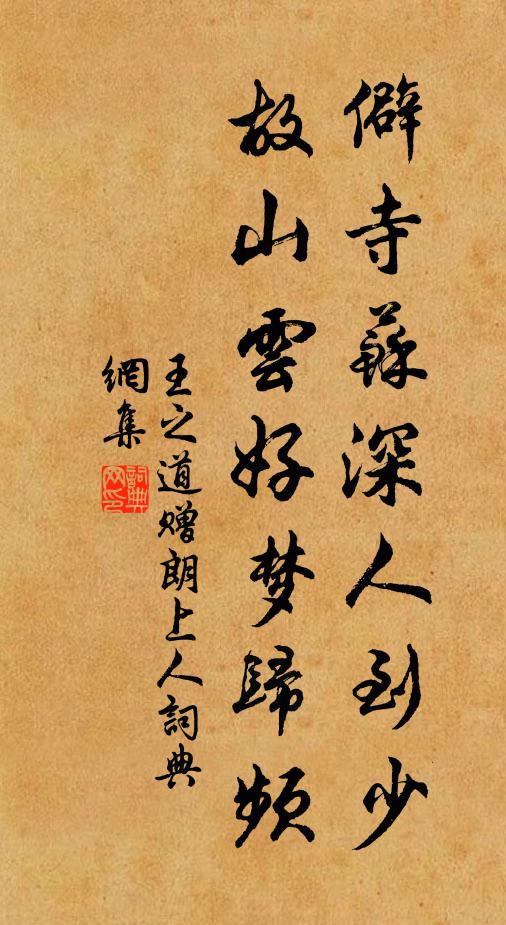 僻寺蘚深人到少
故山雲好梦歸頻
王之道贈朗上人詞典
網集
詞典
网印